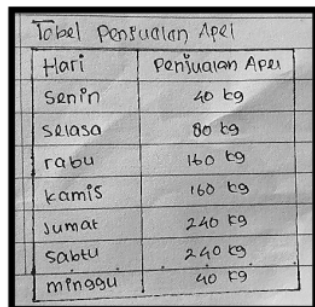 Tabel Penjualan Apel
Hari Penjualan Apel
Senin 40 kg
Selasa 80 kg
rabu 160 kg
kamis 160 kg
Jumat 240 kg
Sabtu 240 kg
minggu 40 kg